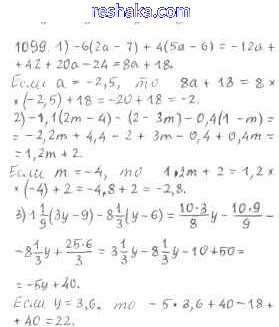 www.reshaka.com
1099. 1) -6(2a - 7) + 4(5a - 6) = -12a +
+ 42 + 20a - 24 = 8a + 18.
Если a = -2,5, то 8a + 18 = 8 ×
× (-2,5) + 18 = -20 + 18 = -2.
2) -1,1(2m - 4) - (2 - 3m) - 0,4(1 - m) =
= -2,2m + 4,4 - 2 + 3m - 0,4 + 0,4m =
= 1,2m + 2.
Если m = -4, то 1,2m + 2 = 1,2 ×
× (-4) + 2 = -4,8 + 2 = -2,8.
3) 1 1/9 (3y - 9) - 8 1/3 (y - 6) = 10·3/8 y - 10·9/9 -
- 8 1/3 y + 25·6/3 = 3 1/3 y - 8 1/3 y - 10 + 50 =
= -5y + 40.
Если y = 3,6, то -5 · 3,6 + 40 = -18 +
+ 40 = 22.